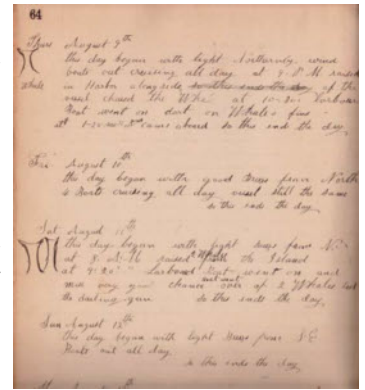 64
Thurs August 9th
this day began with light Northerly wind
boats out cruising all day at 9 P M raised
whale in Harbor alongside so this ends the day of the
vessel chased the Whale at 10-30 Larboard
Boat went on dart on Whales fins
at 1-30 came aboard so this ends the day
Fri August 10th
the day began with good Breeze from North
4 Boats cruising all day vessel still the same
so this ends the day
Sat August 11th
this day began with light Breeze from N
at 8 raised 2 Whales the Island
at 9-20 Larboard Boat went on and
miss very good chance over of 2 Whales
the darting gun so this ends the day
Sun August 12th
this day began with light Breeze from S E
Boats out all day
so this ends the day